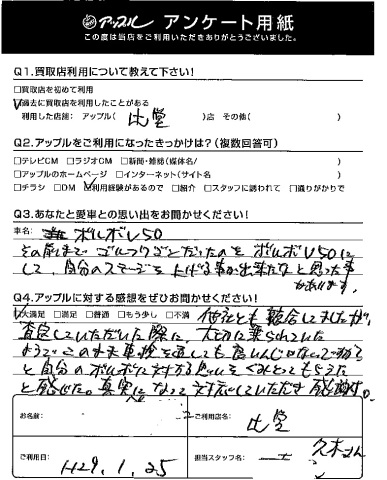 アップル アンケート用紙
この度は当店をご利用いただきありがとうございました。
Q1.買取店利用について教えて下さい!
□買取店を初めて利用
□過去に買取店を利用したことがある
利用した店舗: アップル( 比叡 )店 その他( )
Q2.アップルをご利用になったきっかけは?(複数回答可)
□テレビCM □ラジオCM □新聞・雑誌(媒体名/ )
□アップルのホームページ □インターネット(サイト名 )
□チラシ □DM □利用経験があるので □紹介 □スタッフに誘われて □通りがかりで
Q3.あなたと愛車との思い出をお聞かせください!
車名: ボルボV50
その前まで ゴルフワゴンだったのを ボルボV50に
して、自分のステージを上げる事が出来たなと思った事
があります。
Q4.アップルに対する感想をぜひお聞かせください!
□大満足 □満足 □普通 □もう少し □不満 他社とも競合してましたが、
査定していただいた際に、大切に乗られていた
ようでこのまま車検を通しても良いんじゃない
と自分のボルボに対する思いをくみとってもらえた
と感じた。真実になって対応していただき感謝。
お名前:
ご利用店名:
比叡
ご利用日:
H29.1.25
担当スタッフ名:
久木さん